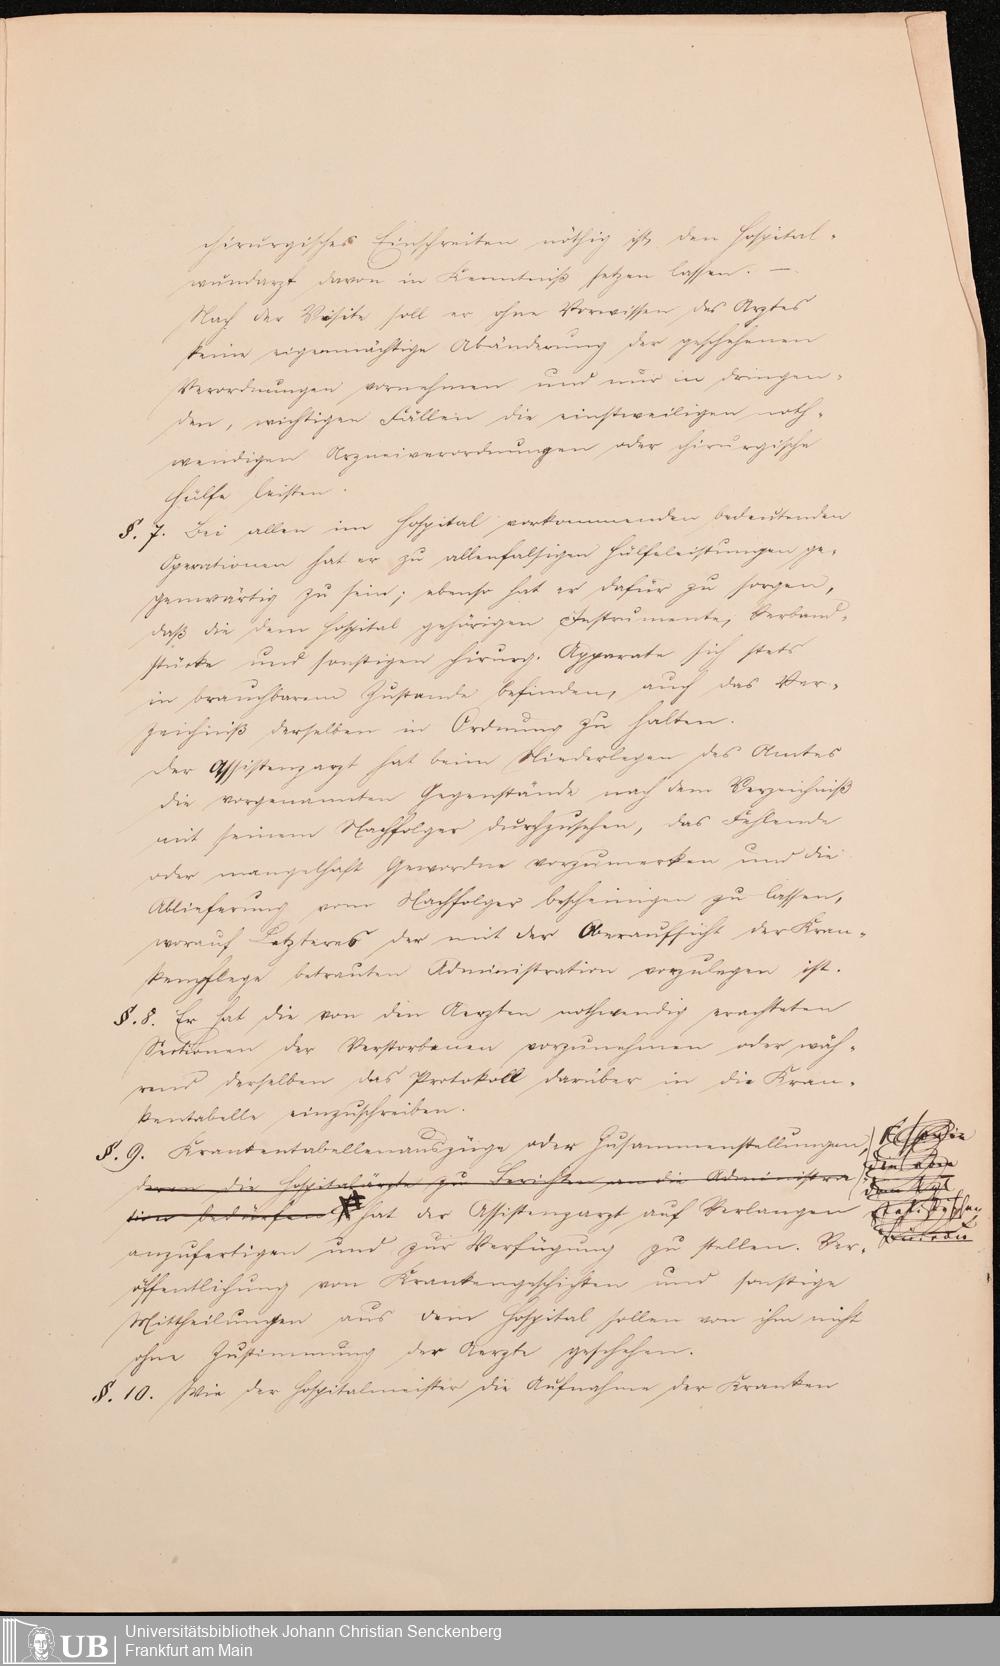 chirurgisches Einschreiten nöthig ist, den Hospital-
wundarzt davon in Kenntniß setzen lassen. —
Nach der Visite soll er ohne Vorwissen des Arztes
keine eigenmächtige Abänderung der geschehenen
Verordnungen vornehmen und nur in dringen-
den, wichtigen Fällen die einstweiligen noth-
wendigen Arzneiverordnungen oder chirurgische
Hülfe leisten.
§. 7. Bei allen im Hospital vorkommenden bedeutenden
Operationen hat er zu allenfalsigen Hülfeleistungen ge-
genwärtig zu sein; ebenso hat er dafür zu sorgen,
daß die dem Hospital gehörigen Instrumente, Verband-
stücke und sonstigen chirurg. Apparate sich stets
in brauchbarem Zustande befinden, auch das Ver-
zeichniß derselben in Ordnung zu halten.
Der Assistenzarzt hat beim Niederlegen des Amtes
die vorgenannten Gegenstände nach dem Verzeichniß
mit seinem Nachfolger durchzusehen, das Fehlende
oder mangelhaft Gewordne vorzumerken und die
Ablieferung vom Nachfolger bescheinigen zu lassen,
worauf Letzteres der mit der Oberaufsicht der Kran-
kenpflege betrauten Administration vorzulegen ist.
§. 8. Er hat die von den Aerzten nothwendig erachteten
Sectionen der Verstorbenen vorzunehmen oder wäh-
rend derselben das Protokoll darüber in die Kran-
kentabelle einzuschreiben.
§. 9. Krankentabellenauszüge oder Zusammenstellungen,
deren die Hospitalärzte zu Berichten an die Administra
tion bedürfen hat der Assistenzarzt auf Verlangen
anzufertigen und zur Verfügung zu stellen. Ver-
öffentlichung von Krankengeschichten und sonstige
Mittheilungen aus dem Hospital sollen von ihm nicht
ohne Zustimmung der Aerzte geschehen.
§. 10. Wie der Hospitalmeister die Aufnahme der Kranken
UB
Universitätsbibliothek Johann Christian Senckenberg
Frankfurt am Main